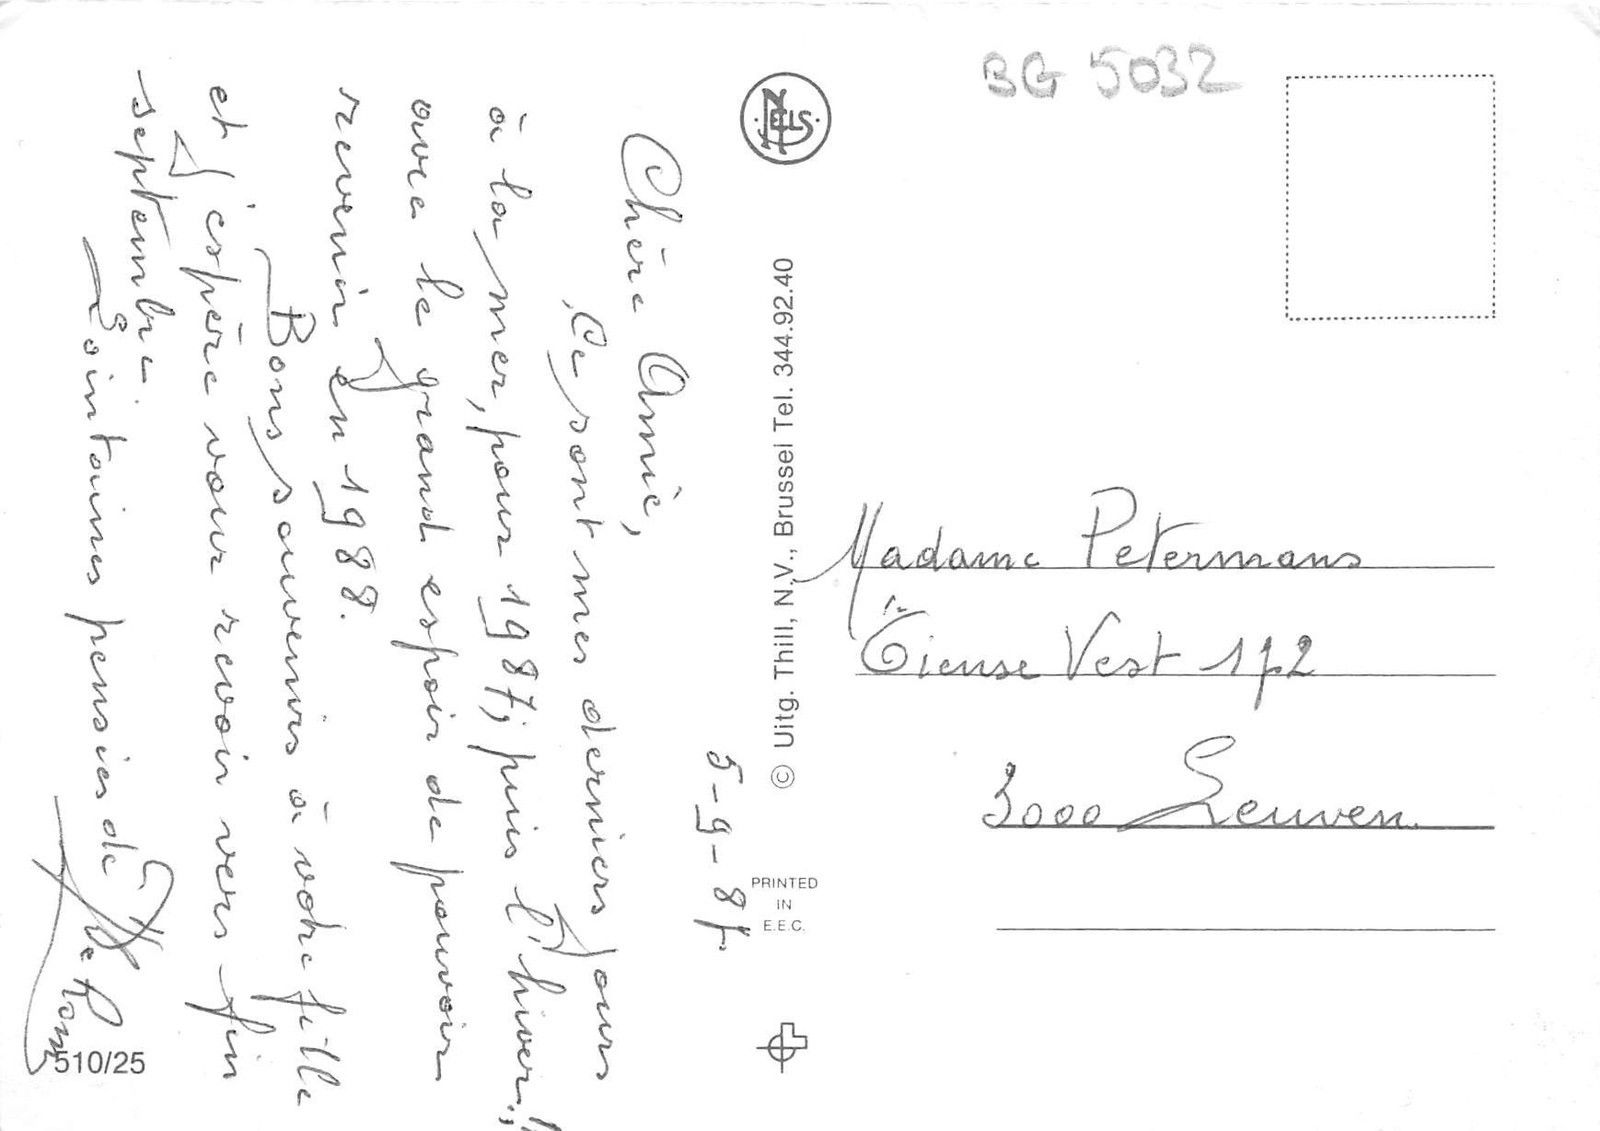 BG 5032
NELS
5-9-87
Chère Amie,
Ce sont mes derniers jours
à la mer, pour 1987; puis l'hiver!!
avec le grand espoir de pouvoir
revenir en 1988.
Bons souvenirs à votre fille
et j'espère vous revoir vers fin
septembre.
Lointaines pensées de
510/25
© Uitg. Thill, N.V., Brussel Tel. 344.92.40
PRINTED
IN
E.E.C.
Madame Petermans
Tiense Vest 172
3000 Leuven